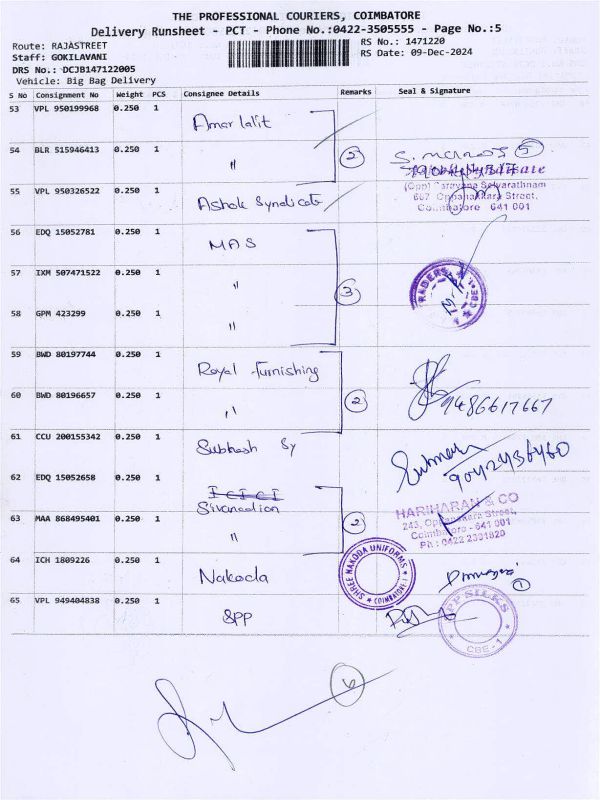 THE PROFESSIONAL COURIERS, COIMBATORE
Delivery Runsheet - PCT - Phone No.:0422-3505555 - Page No.:5
Route: RAJASTREET RS No.: 1471220
Staff: GOKILAVANI RS Date: 09-Dec-2024
DRS No.: DCJB147122005
Vehicle: Big Bag Delivery
S No Consignment No Weight PCS Consignee Details Remarks Seal & Signature
53 VPL 950199968 0.250 1 Amar lalit
54 BLR 515946413 0.250 1 " 2 5
(Opp) Narayana Selvarathnam
667 Oppanakkara Street,
Coimbatore 641 001
55 VPL 950326522 0.250 1 Ashok Syndicate
56 EDQ 15052781 0.250 1 MAS
57 IXM 507471522 0.250 1 " 3
58 GPM 423299 0.250 1 "
59 BWD 80197744 0.250 1 Royal furnishing
60 BWD 80196657 0.250 1 " 2 9486617667
61 CCU 200155342 0.250 1 Subhash Sy
9042436460
62 EDQ 15052658 0.250 1 ICICI
Sivanedion
HARIHARAN & CO
243, Oppanakara Street,
Coimbatore - 641 001
Ph : 0422 2391820
63 MAA 868495401 0.250 1 " 2
64 ICH 1809226 0.250 1 Nakoda
SHREE NAKODA UNIFORMS
COIMBATORE-1
1
65 VPL 949404838 0.250 1 SPP
PP SILKS
CBE - 1
6